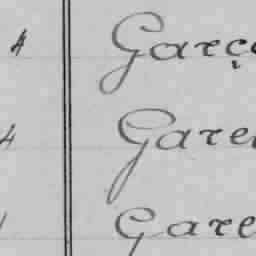 4 Garç
4 Gare
Gare